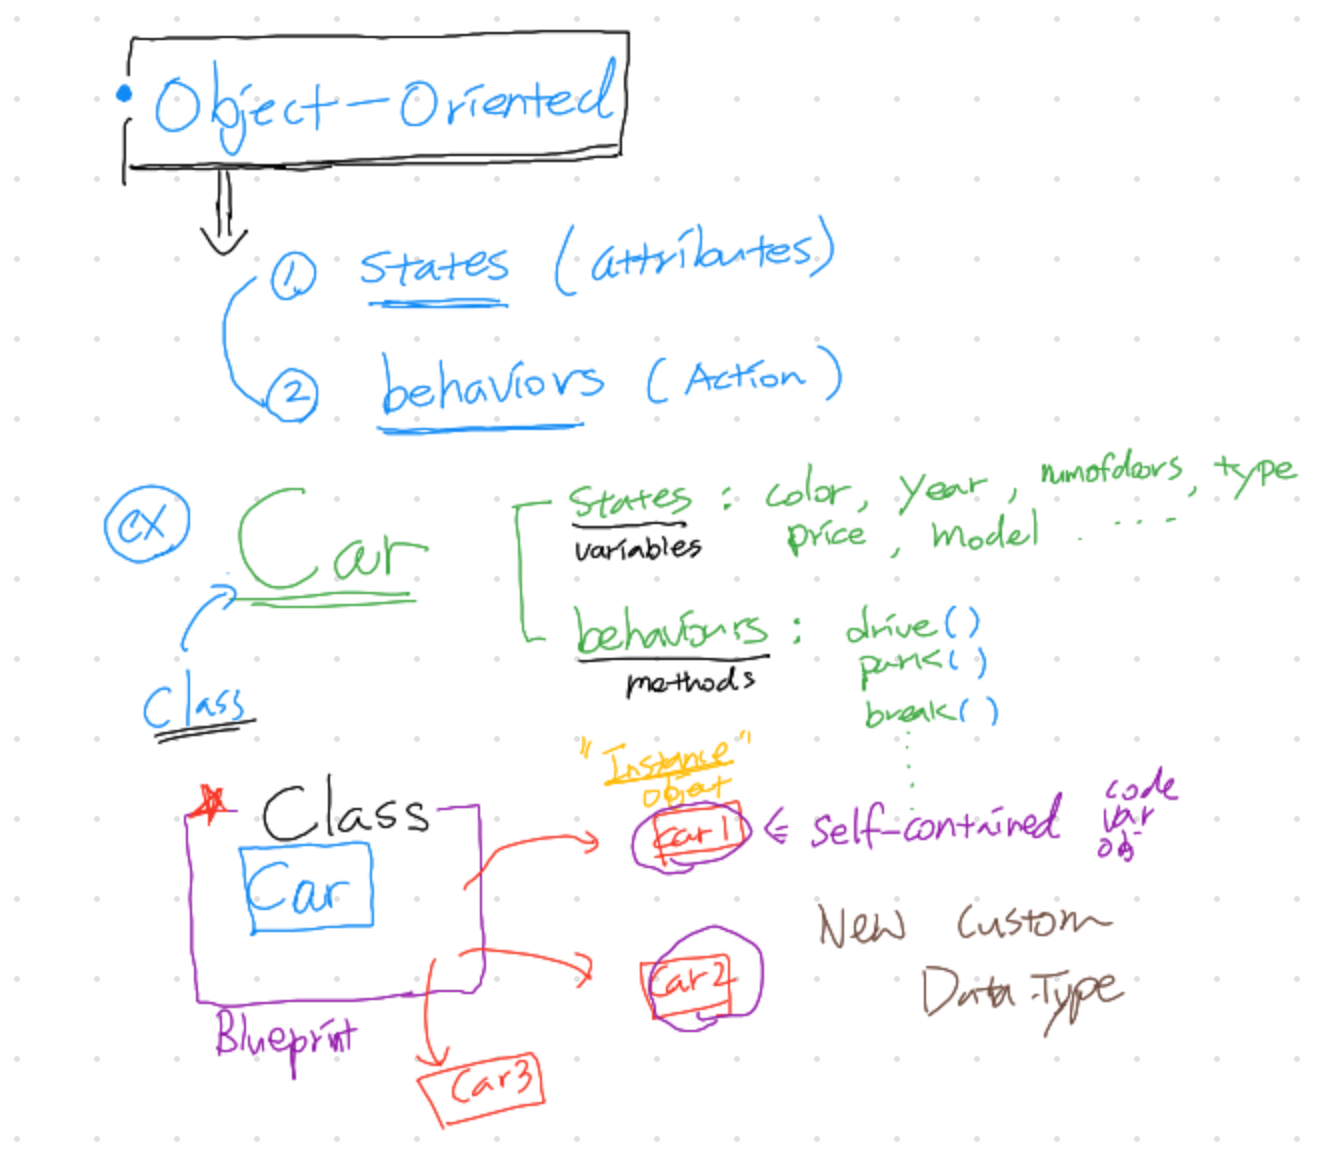 Object-Oriented
① states (attributes)
② behaviors (Action)
ex Car
States : color, year, numofdoors, type
variables price, model ...
behaviours : drive()
methods park()
break()
Class
"Instance"
object
Class
Car
Blueprint
car1 ⇐ self-contained
code
var
obj
Car2
Car3
New Custom
Data-Type